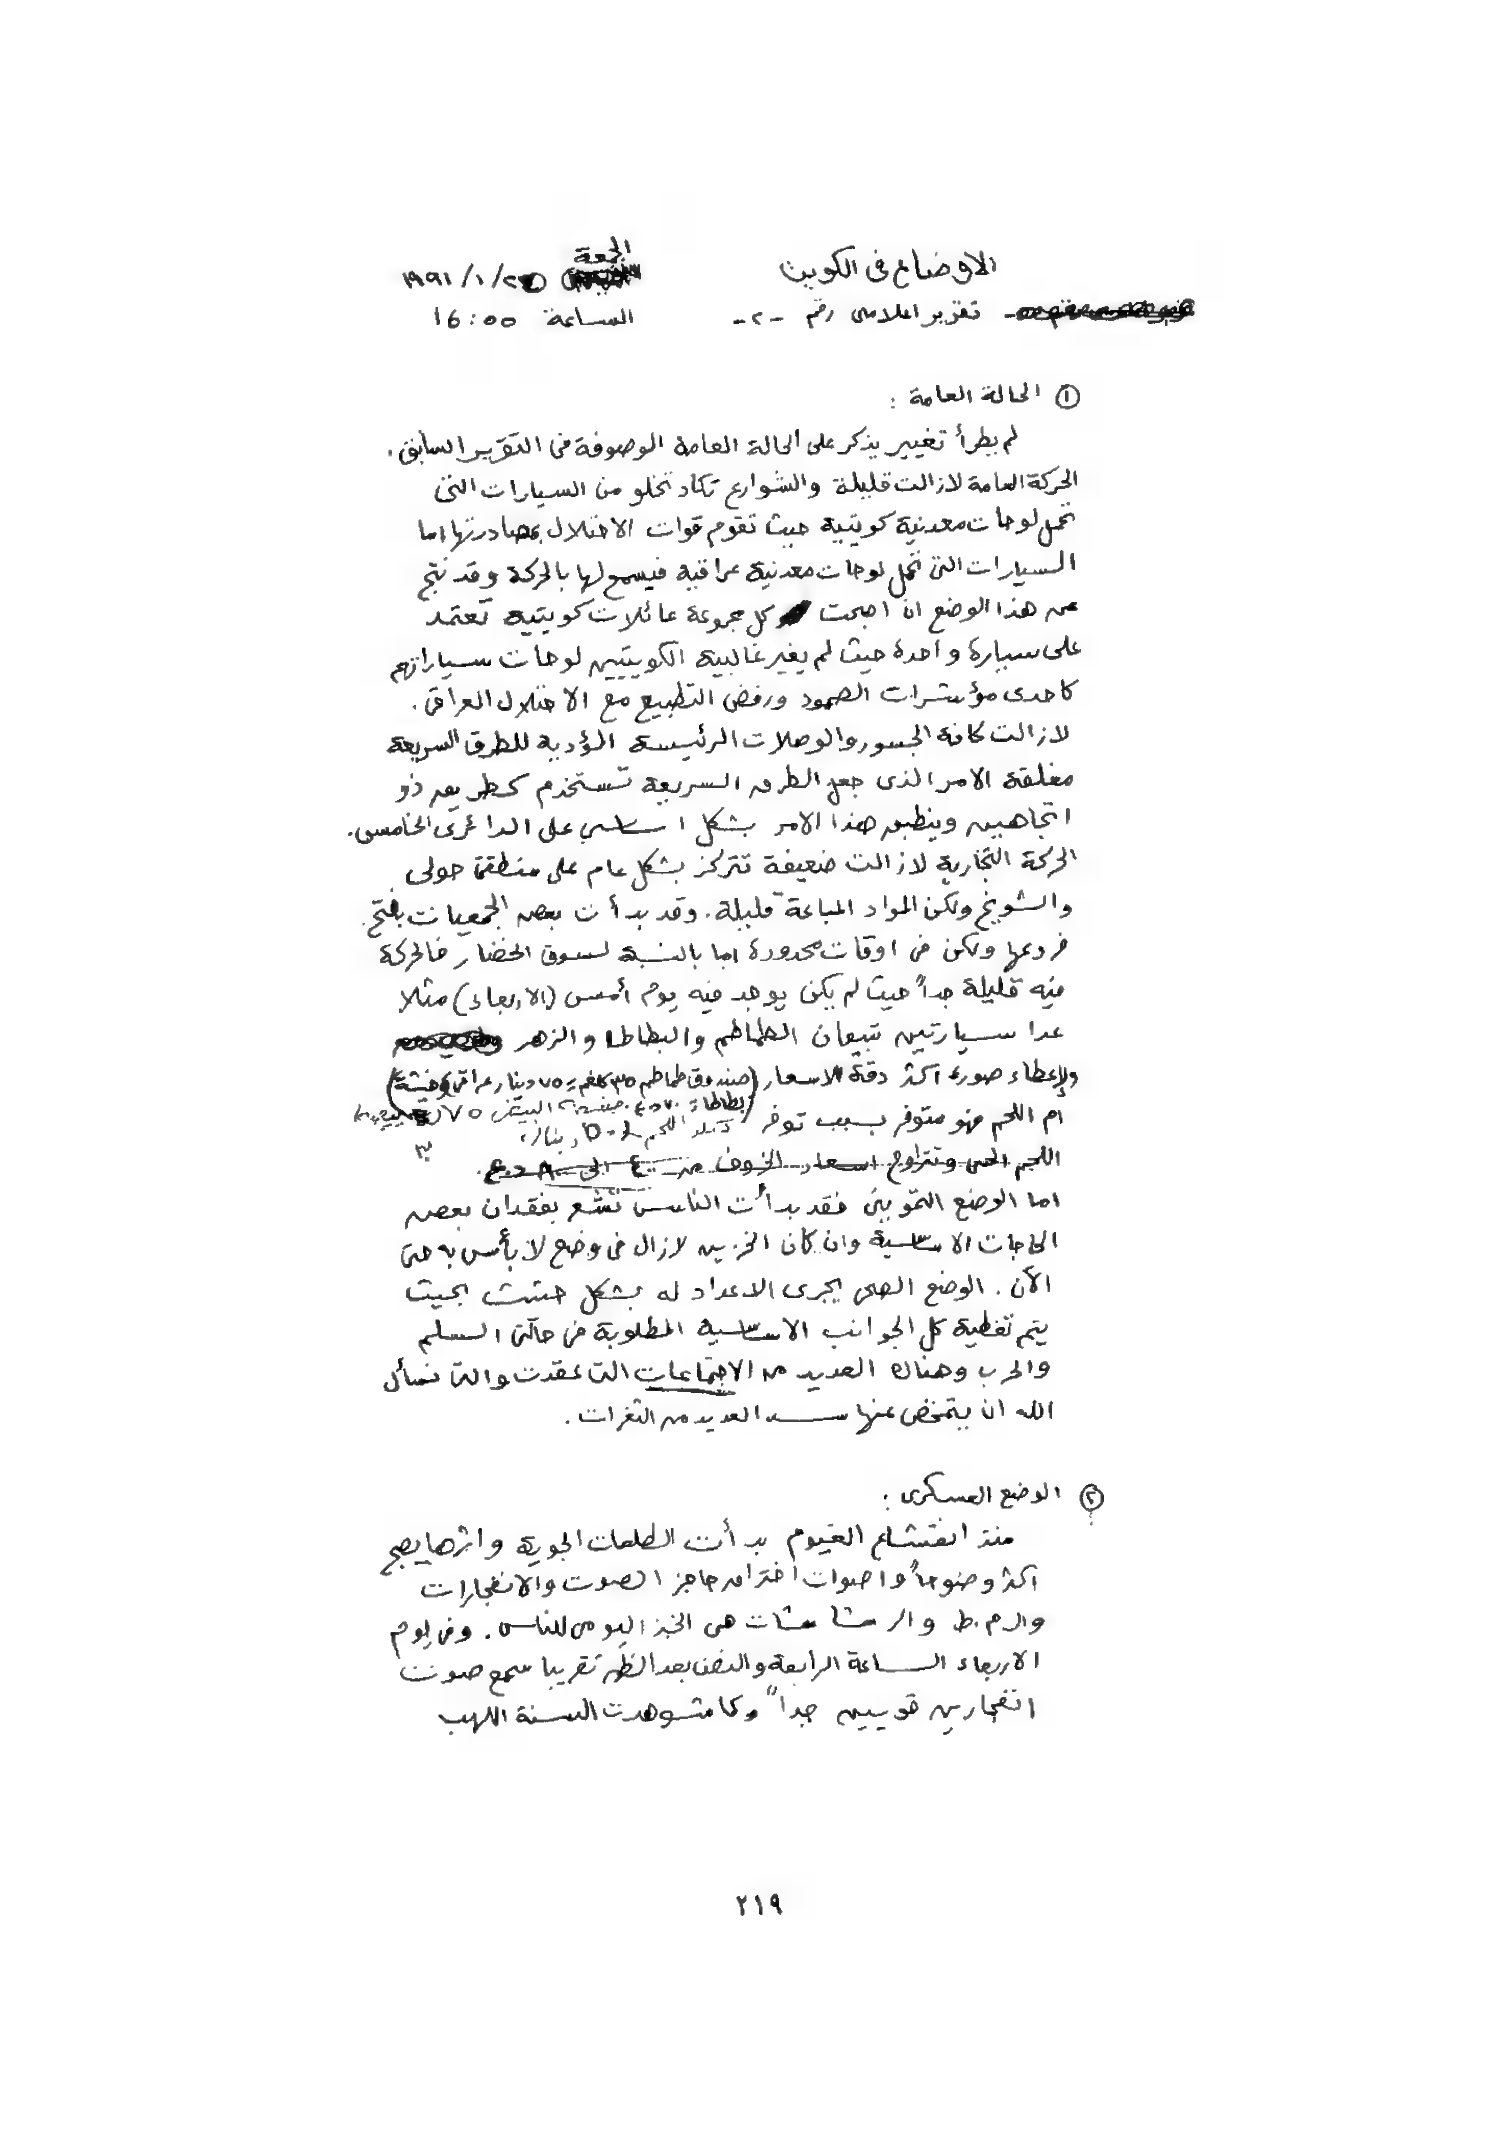 الاوضاع في الكويت
الجمعة
١٩٩١/١/٢
تقرير اعلامي رقم -٢-
الساعة 16:00
① الحالة العامة :
لم يطرأ تغيير يذكر على الحالة العامة الموصوفة في التقرير السابق .
الحركة العامة لازالت قليلة والشوارع تكاد تخلو من السيارات التي
تحمل لوحات معدنية كويتية حيث تقوم قوات الاحتلال بمصادرتها اما
السيارات التي تحمل لوحات معدنية عراقية فيسمح لها بالحركة وقد نتج
عن هذا الوضع ان اصبحت كل مجموعة عائلات كويتية تعتمد
على سيارة واحدة حيث لم يغير غالبية الكويتيين لوحات سياراتهم
كاحدى مؤشرات الصمود ورفض التطبيع مع الاحتلال العراقي .
لازالت كافة الجسور والوصلات الرئيسة المؤدية للطرق السريعة
مغلقة الامر الذى جعل الطرق السريعة تستخدم كطريق ذو
اتجاهين وينطبق هذا الامر بشكل اساسي على الدائرى الخامس .
الحركة التجارية لازالت ضعيفة تتركز بشكل عام على منطقتا حولي
والشويخ ولكن المواد المباعة قليلة . وقد بدأت بعض الجمعيات بفتح
فروعها ولكن في اوقات محدودة اما بالنسبة لسوق الخضار فالحركة
فيه قليلة جداً حيث لم يكن يوجد فيه يوم أمس (الاربعاء) مثلا
عدا سيارتين تبيعان الطماطم والبطاطا والزهر
ولإعطاء صورة أكثر دقة الاسعار (صندوق طماطم ٣٥ كلغم = ٧٥ دينار عراقي) وخيشة
بطاطا = ٧٠ د.ع. البيض ٧٥
ام اللحم فهو متوفر بسبب توفر
اللحم الحي وتتراوح اسعار الخروف من ٤٠٠ الى ٨٠٠ د.ع.
اما الوضع التمويني فقد بدأت الناس تشعر بفقدان بعض
الحاجات الاساسية وان كان الخزين لازال في وضع لا بأس به حتى
الآن . الوضع الصحي يجرى الاعداد له بشكل حثيث بحيث
يتم تغطية كل الجوانب الاساسية المطلوبة في حالتي السلم
والحرب وهناك العديد من الاجتماعات التي عقدت والتي نسأل
الله ان يتمخض عنها سد العديد من الثغرات .
② الوضع العسكرى :
منذ انقشاع الغيوم بدأت الطلعات الجوية واثرها يصبح
أكثر وضوحاً واصوات اختراق حاجز الصوت والانفجارات
والـ م.ط والرشاشات هي الخبز اليومي للناس . وفي يوم
الاربعاء الساعة الرابعة والنصف بعد الظهر تقريبا سمع صوت
انفجارين قويين جداً وكما شوهدت السنة اللهب
٢١٩